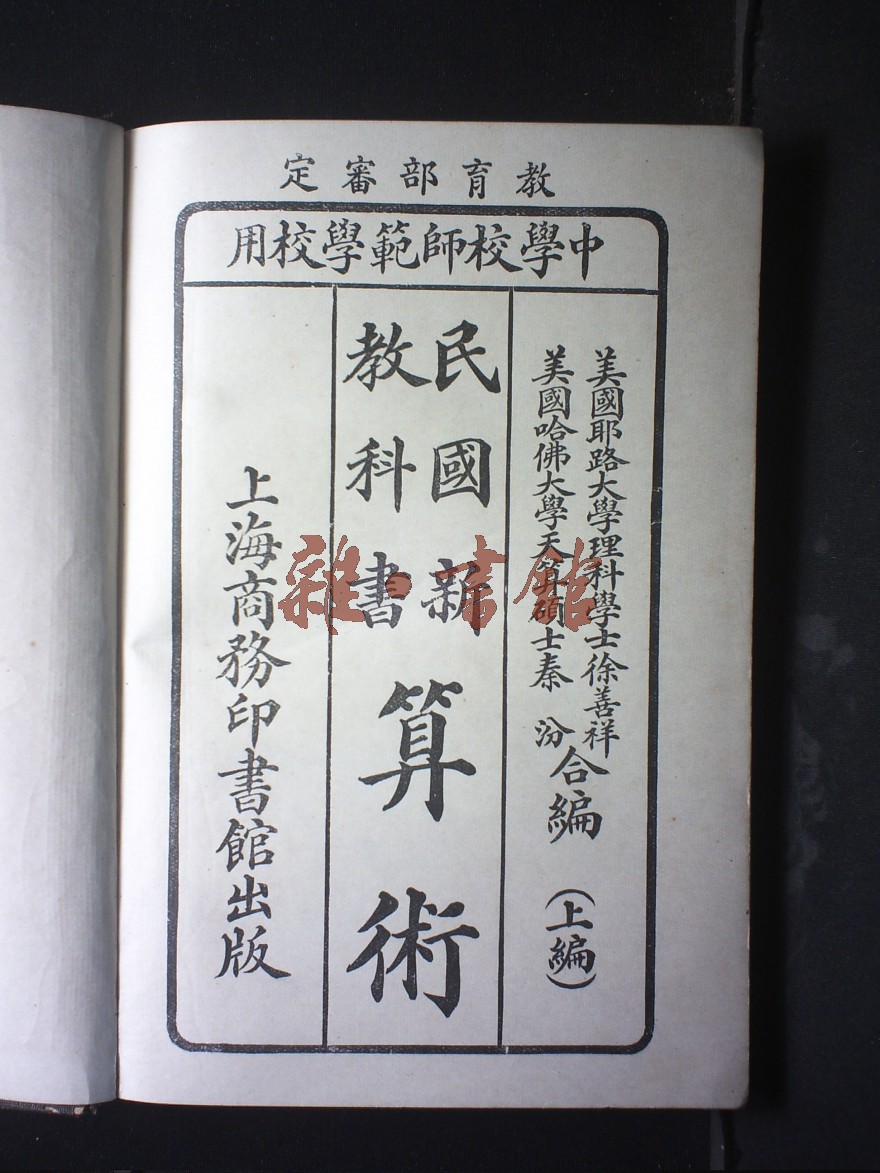 教育部審定
中學校師範學校用
美國耶路大學理科學士徐善祥
美國哈佛大學天算碩士秦汾
合編
（上編）
民國新
教科書
算術
上海商務印書館出版
雜·书館